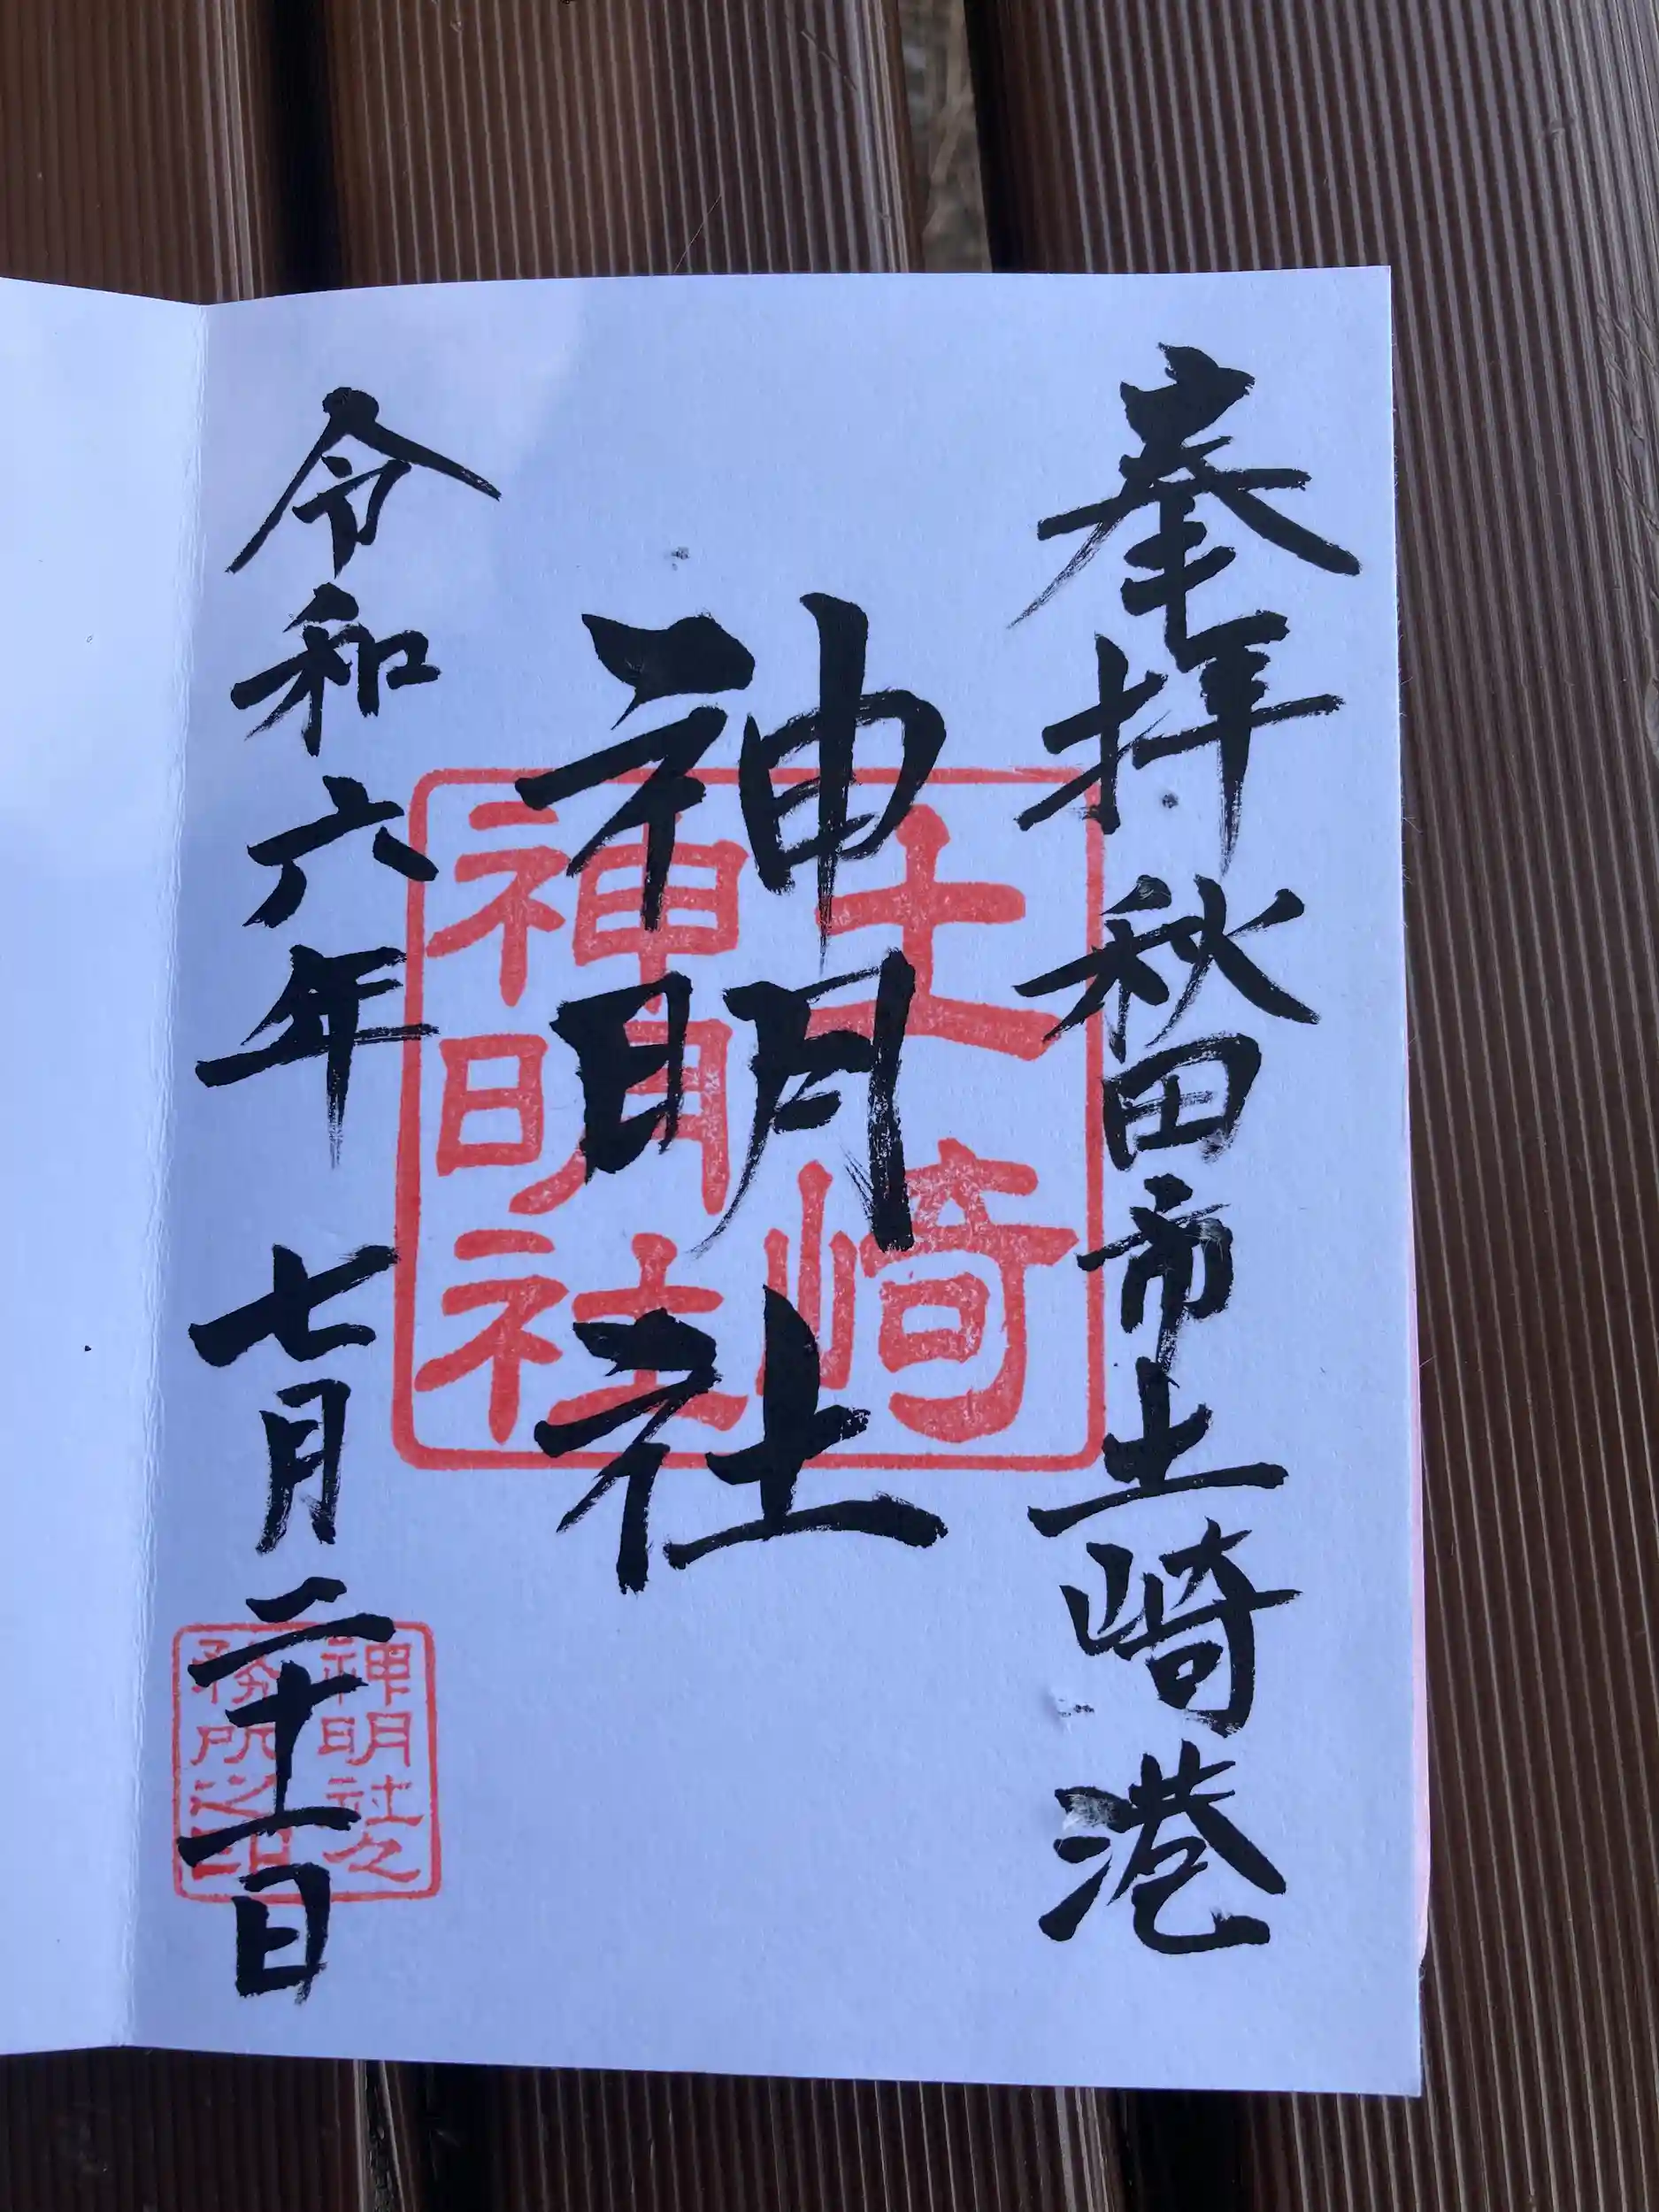 奉拝 秋田市土崎港
神明社
令和六年 七月二十一日
土崎
神明社
神明社之
務所之印